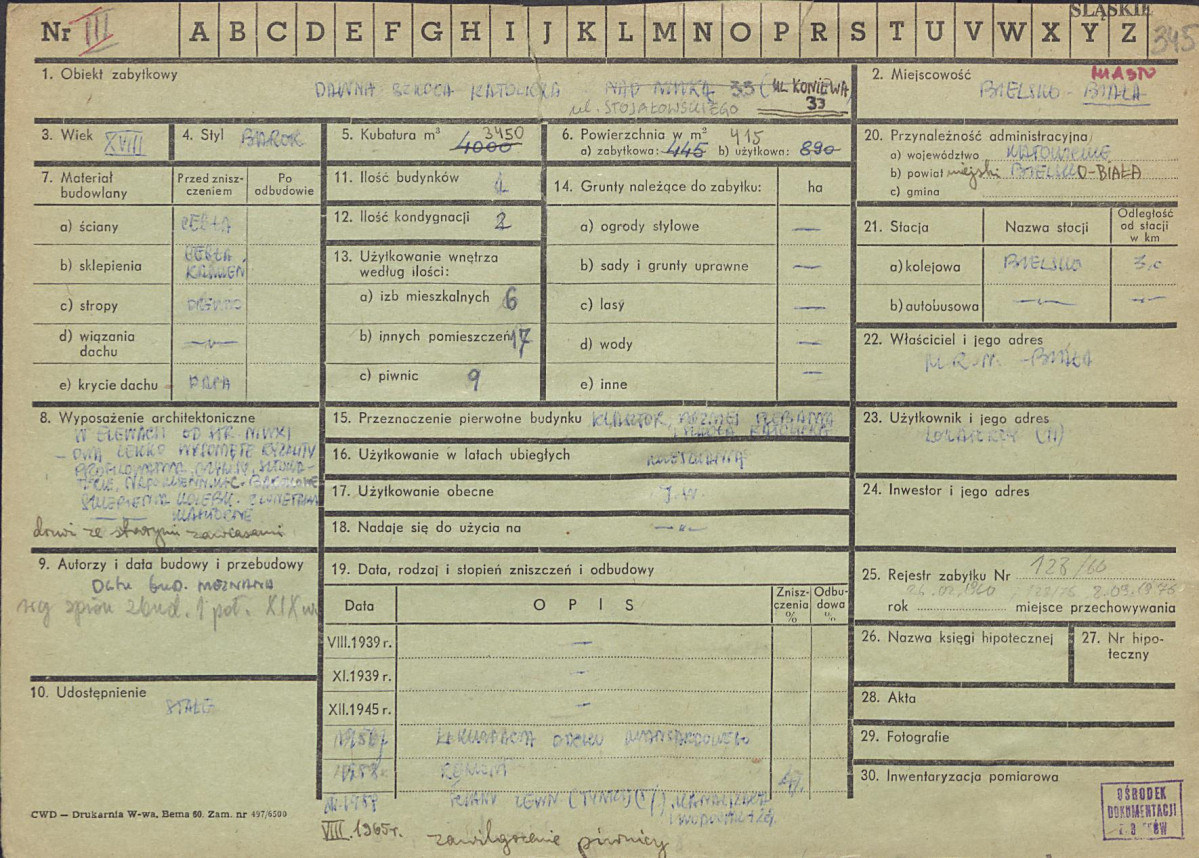 ŚLĄSKIE
Nr III A B C D E F G H I J K L M N O P R S T U V W X Y Z 345
1. Obiekt zabytkowy
DAWNA SZKOŁA KATOLICKA NAD NIWKĄ 33 (UL. KONIEWA 33
ul. STOJAŁOWSKIEGO
2. Miejscowość MIASTO
BIELSKO - BIAŁA
3. Wiek XVIII
4. Styl BAROK
5. Kubatura m³ 3450
4000
6. Powierzchnia w m² 415
a) zabytkowa: 445 b) użytkowa: 890
20. Przynależność administracyjna
a) województwo KATOWICKIE
b) powiat miejski BIELSKO-BIAŁA
c) gmina
7. Materiał budowlany
Przed zniszczeniem
Po odbudowie
a) ściany CEGŁA
b) sklepienia CEGŁA, KAMIEŃ
c) stropy DREWNO
d) wiązania dachu —"—
e) krycie dachu PAPA
11. Ilość budynków 1
12. Ilość kondygnacji 2
13. Użytkowanie wnętrza według ilości:
a) izb mieszkalnych 6
b) innych pomieszczeń 17
c) piwnic 9
14. Grunty należące do zabytku: ha
a) ogrody stylowe —
b) sady i grunty uprawne —
c) lasy —
d) wody —
e) inne —
21. Stacja
Nazwa stacji
Odległość od stacji w km
a) kolejowa BIELSKO 3,0
b) autobusowa —"— —"—
22. Właściciel i jego adres
M.R.N. - BIAŁA
8. Wyposażenie architektoniczne
W ELEWACJI OD STR.
- DWA LEKKO WYSUNIĘTE RYZALITY
drzwi ze starymi zawiasami
15. Przeznaczenie pierwotne budynku KLASZTOR, PÓŹNIEJ PLEBANIA
I SZKOŁA KATOLICKA
16. Użytkowanie w latach ubiegłych MIESZKANIA
17. Użytkowanie obecne J.W.
18. Nadaje się do użycia na —"—
23. Użytkownik i jego adres
LOKATORZY (11)
24. Inwestor i jego adres
9. Autorzy i data budowy i przebudowy
DATA BUD. NIEZNANA
wg spisu zbud. 1 poł. XIX w.
19. Data, rodzaj i stopień zniszczeń i odbudowy
Data
OPIS
Zniszczenia %
Odbudowa %
VIII.1939 r. —
XI.1939 r. —
XII.1945 r. —
1958 r. LIKWIDACJA DACHU MANSARDOWEGO
1958 r. REMONT
25. Rejestr zabytku Nr 128/60
26.02.1960, 128/76 8.03.1976
rok miejsce przechowywania
26. Nazwa księgi hipotecznej
27. Nr hipoteczny
28. Akta
29. Fotografie
30. Inwentaryzacja pomiarowa
10. Udostępnienie
STAŁE
VIII.1965r. zawilgocenie piwnicy
CWD — Drukarnia W-wa, Bema 60. Zam. nr 497/6500
OŚRODEK
DOKUMENTACJI